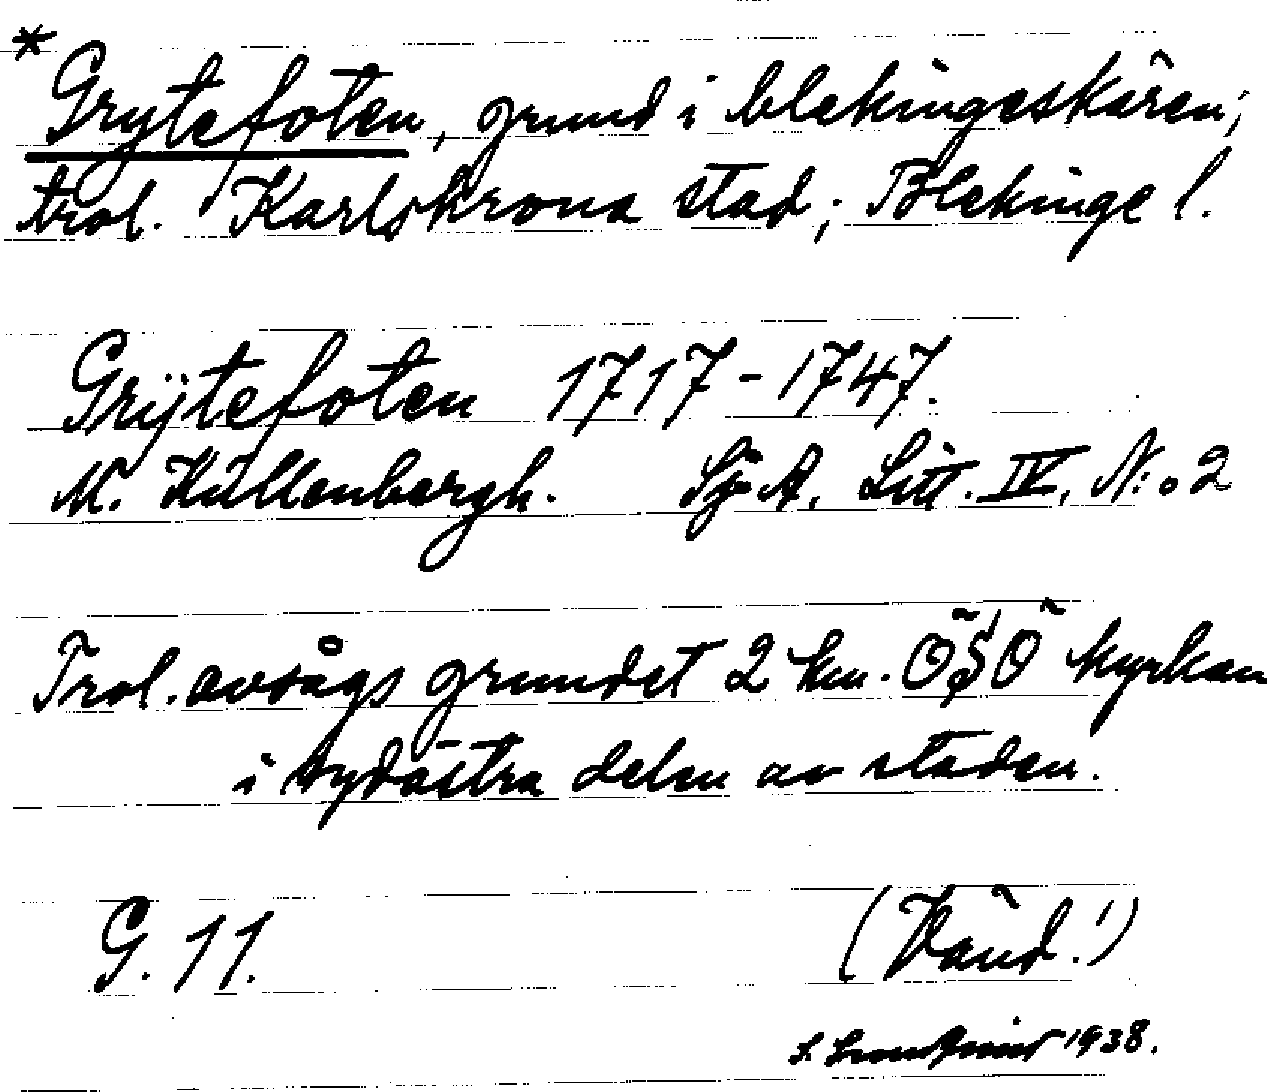 * Grytefoten, grund i blekingeskären;
trol. Karlskrona stad; Blekinge l.
Grÿtefoten 1717-1747.
M. Kullenbergh. Sj. A. Litt. IV. N:o 2
Trol. avsågs grundet 2 km. ÖSÖ kyrkan
i sydöstra delen av staden.
G. 11.
(Vänd!)
1938.